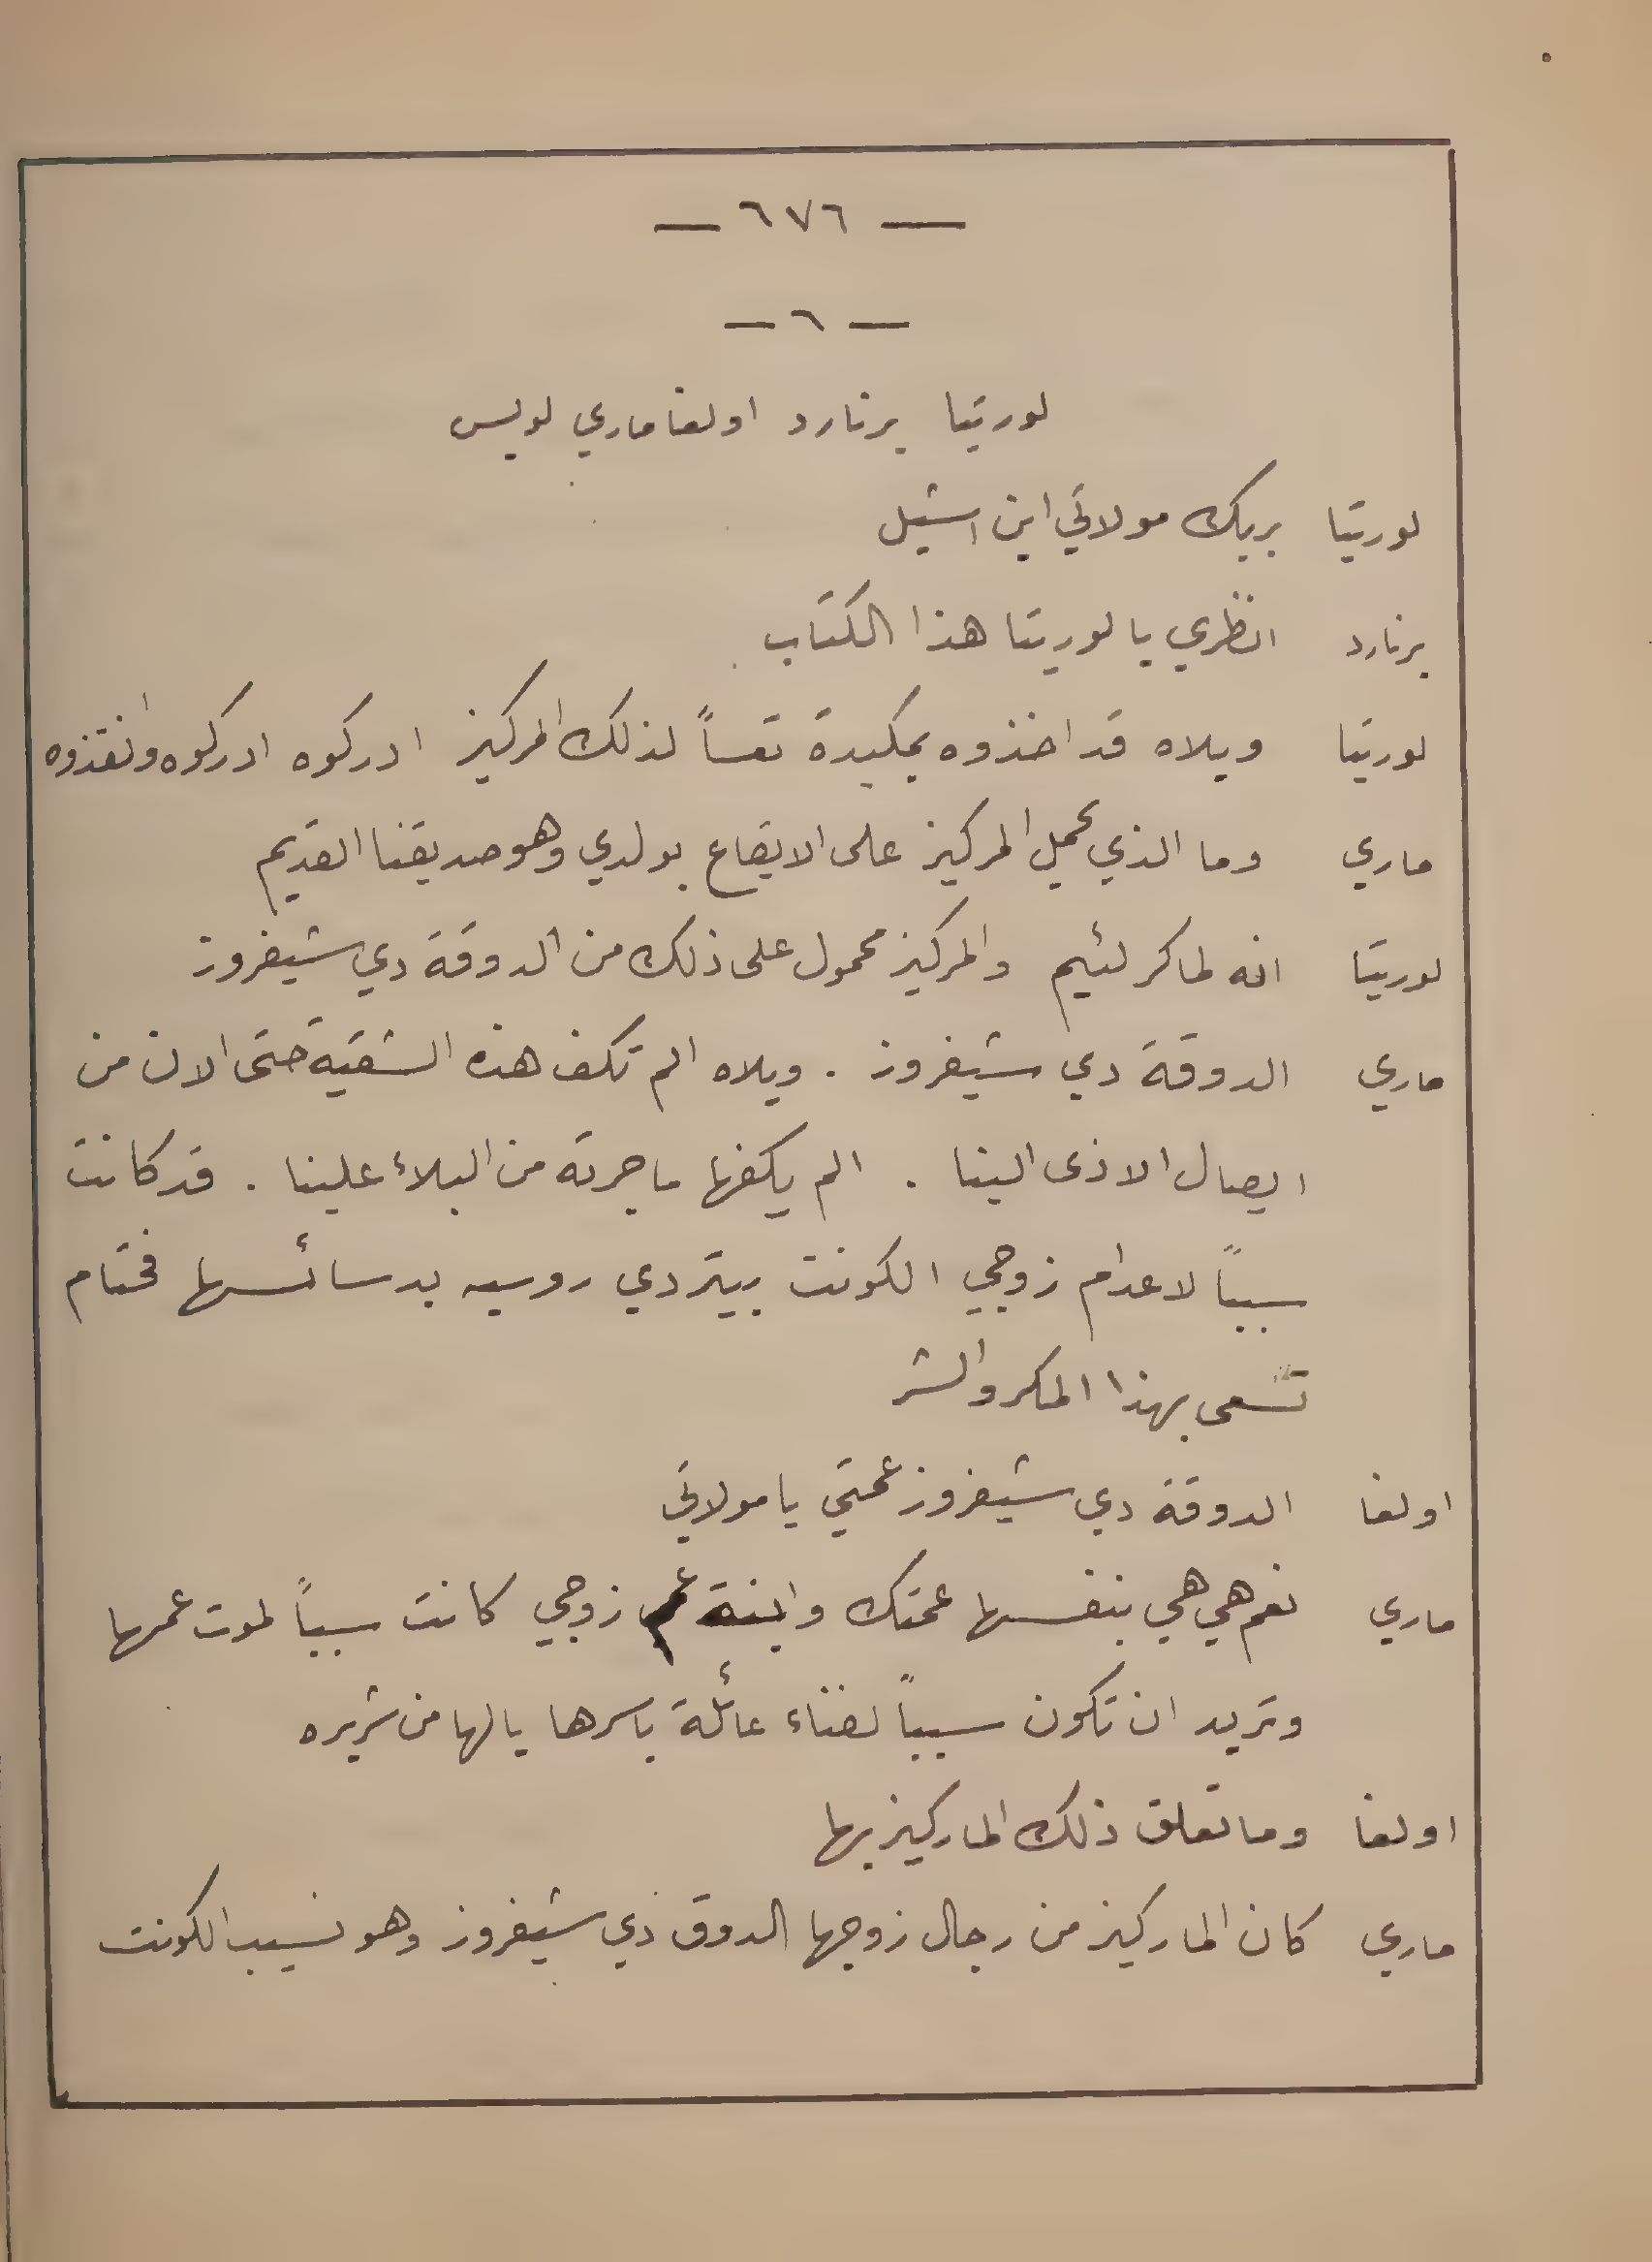 — ٦٧٦ —
— ٦ —
لوريتا برنارد اولغا ماري لويس
لوريتا بربك مولاتي اين اشيل
برنارد انظري يا لوريتا هذا الكتاب
لوريتا ويلاه قد اخذوه بمكيدة تعساً لذلك المركيز ادركوه ادركوه وانقذوه
ماري وما الذي يحمل المركيز على الايقاع بولدي وهو صديقنا القديم
لوريتا انه لماكر لئيم والمركيز محمول على ذلك من الدوقة دي شيفروز
ماري الدوقة دي شيفروز . ويلاه الم تكف هذه الشقية حتى الان من
ايصال الاذى الينا . الم يكفها ما جرته من البلاء علينا . قد كانت
سبباً لاعدام زوجي الكونت بيتر دي روسيه بدسائسها فحتام
تسعى بهذا المكر والشر
اولغا الدوقة دي شيفروز عمتي يا مولاتي
ماري نعم هي هي بنفسها عمتك وابنة عم زوجي كانت سبباً لموت عمها
وتريد ان تكون سبباً لفناء عائلة باسرها يا لها من شريره
اولغا وما تعلق ذلك الماركيز بها
ماري كان الماركيز من رجال زوجها الدوق دي شيفروز وهو نسيب الكونت